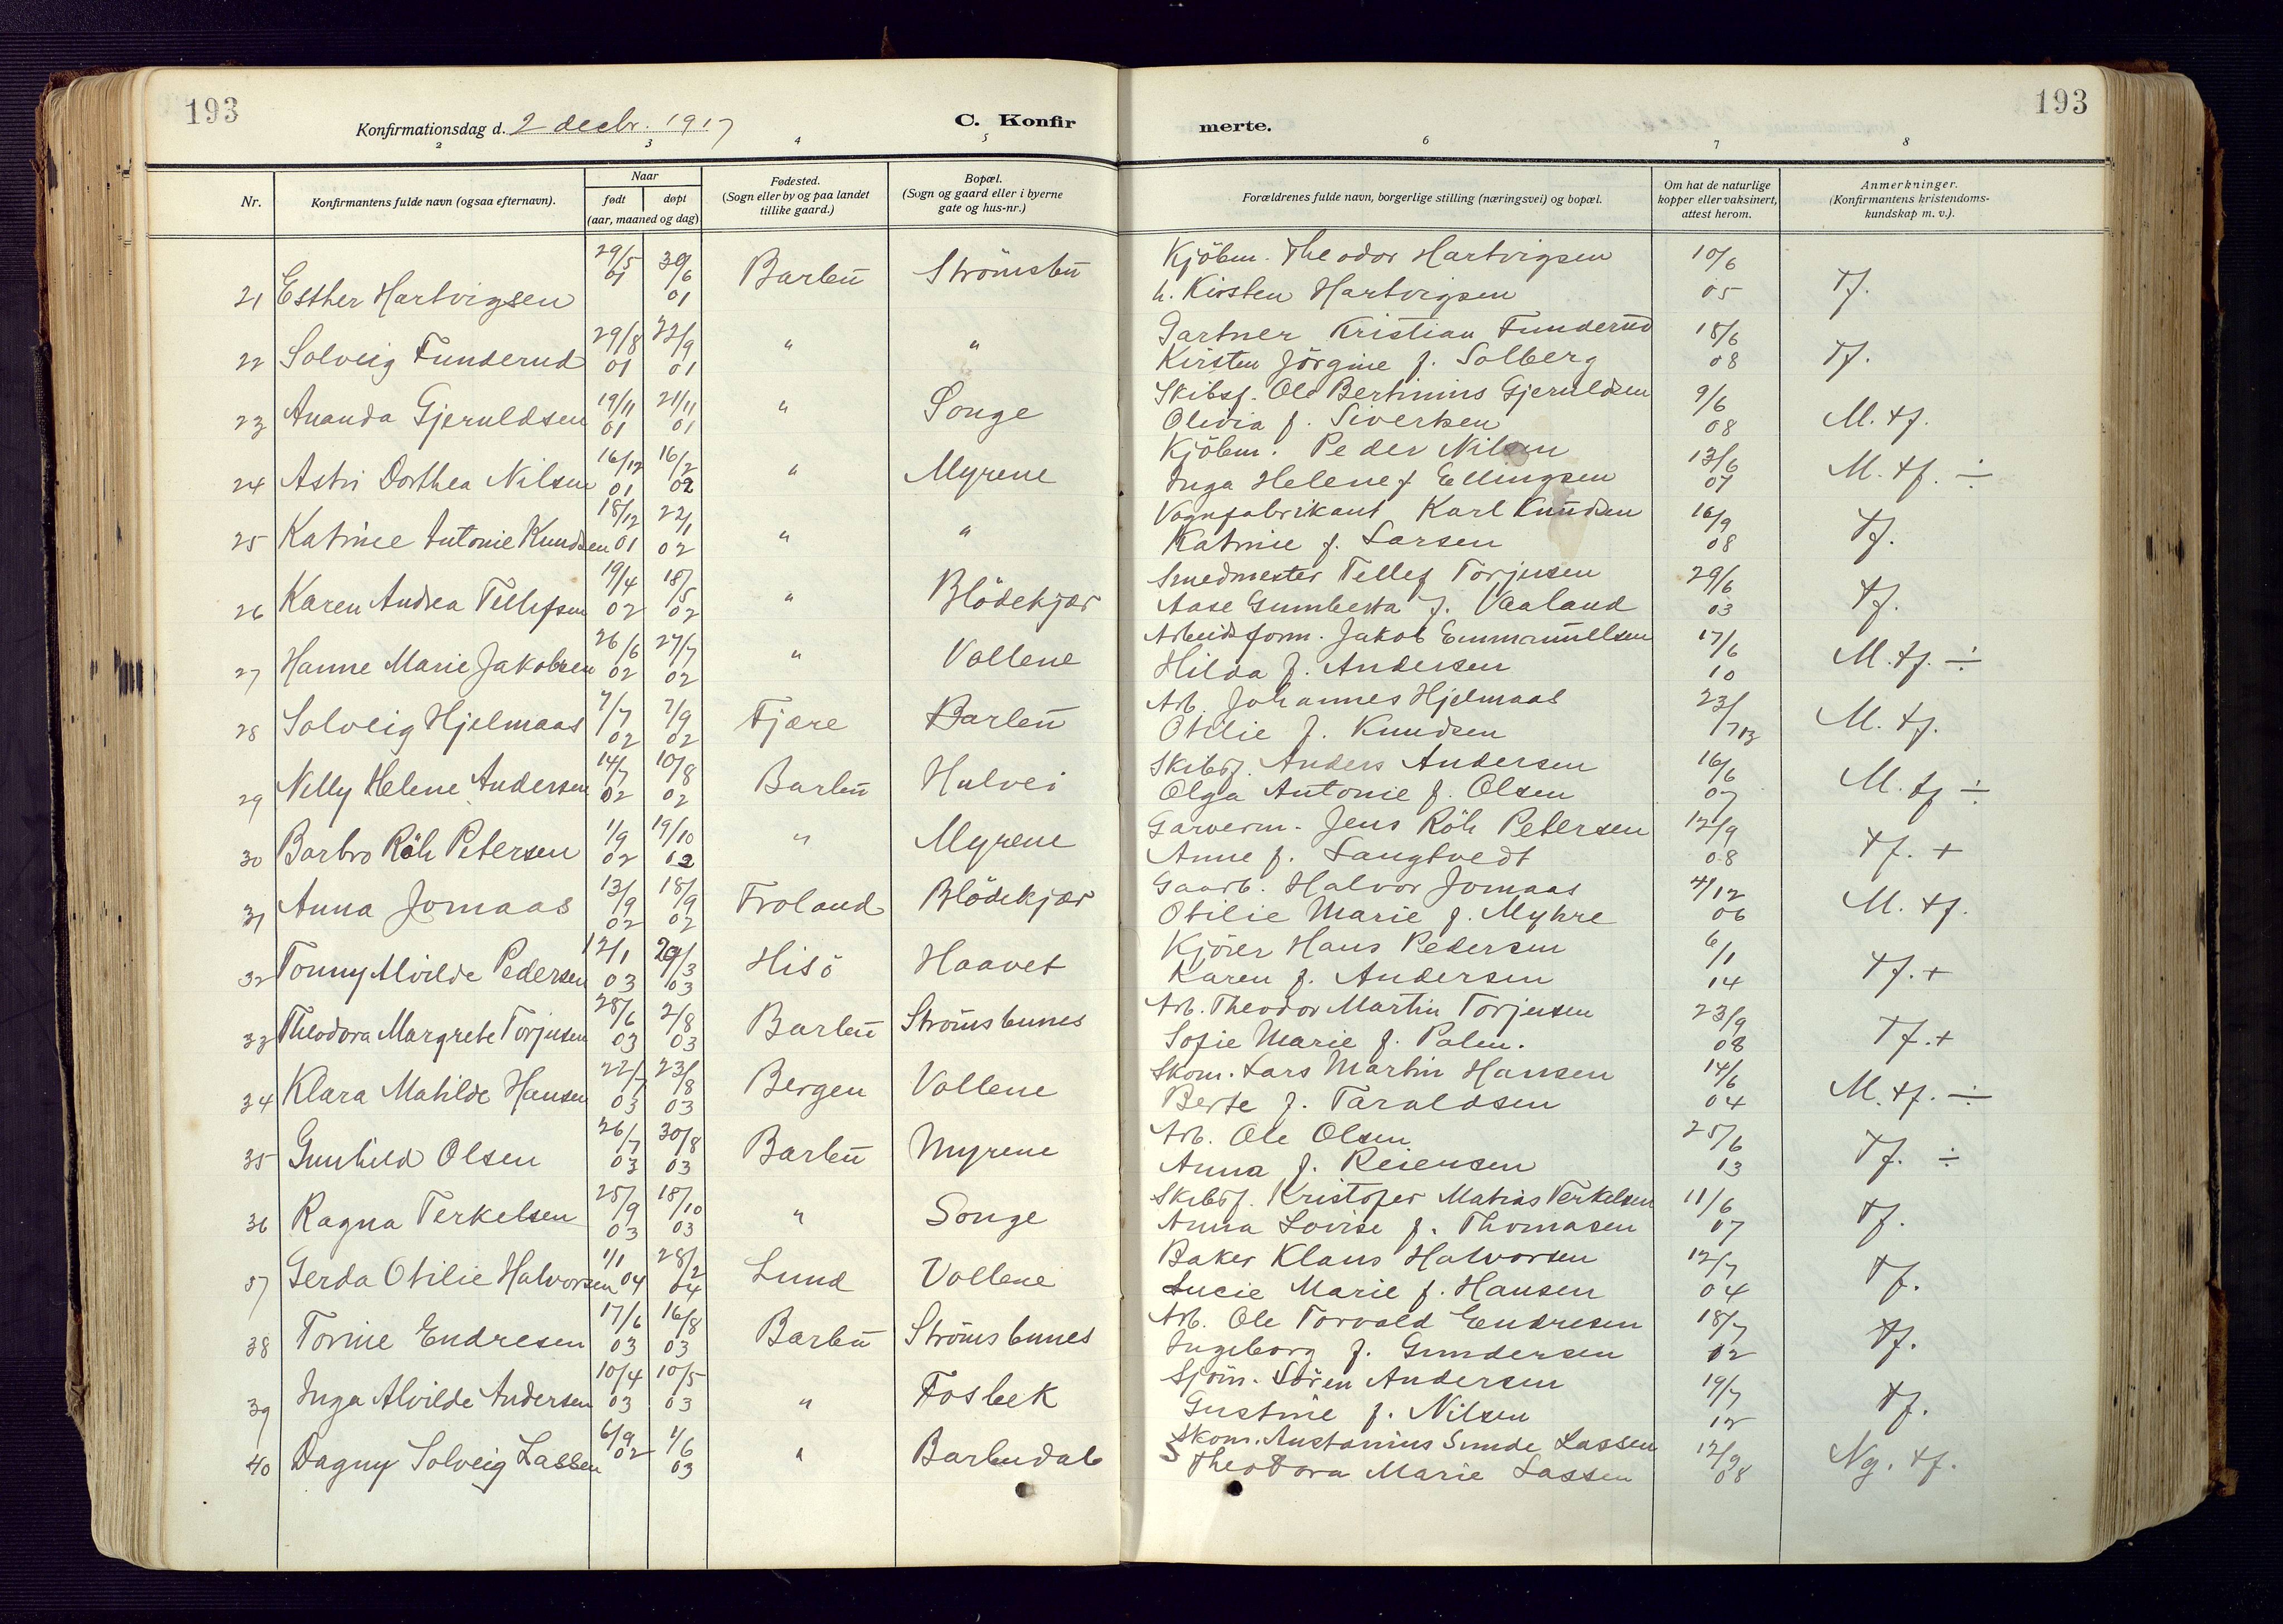 193
193
Konfirmationsdag d. 2 decbr. 1917
C. Konfir
merte.
2 3 4 5 6 7 8
Nr.
Konfirmantens fulde navn (ogsaa efternavn).
Naar
født døpt
(aar, maaned og dag)
Fødested.
(Sogn eller by og paa landet
tillike gaard.)
Bopæl.
(Sogn og gaard eller i byerne
gate og hus-nr.)
Forældrenes fulde navn, borgerlige stilling (næringsvei) og bopæl.
Om hat de naturlige
kopper eller vaksinert,
attest herom.
Anmerkninger.
(Konfirmantens kristendoms-
kundskap m. v.).
21 Esther Hartvigsen 29/5 01 30/6 01 Barbu Strömsbu Kjöbm. Theodor Hartvigsen 10/6 05 Tf.
h. Kirsten Hartvigsen
22 Solveig Funderud 29/8 01 22/9 01 " " Gartner Kristian Funderud 18/6 08 Tf.
Kirsten Jörgine f. Solberg
23 Ananda Gjeruldsen 19/11 01 21/11 01 " Songe Skibsf. Ole Bertinius Gjeruldsen 9/6 08 M. tf.
Olivia f. Sivertsen
24 Astri Dorthea Nilsen 16/12 01 16/2 02 " Myrene Kjöbm. Peder Nilsen 13/6 07 M. tf. ÷
Inga Helene f Ellingsen
25 Katrine Antonie Knudsen 18/12 01 22/1 02 " " Vognfabrikant Karl Knudsen 16/9 08 Tf.
Katrine f. Larsen
26 Karen Andrea Tellefsen 19/4 02 18/5 02 " Blödekjær Smedmester Tellef Torjusen 29/6 03 Tf.
Aase Gumberta f. Vaaland
27 Hanne Marie Jakobsen 26/6 02 27/7 02 " Vollene Arbeidsform. Jakob Emmanuellsen 17/6 10 M. tf. ÷
Hilda f. Andersen
28 Solveig Hjelmaas 7/7 02 7/9 02 Fjære Barbu Arb. Johannes Hjelmaas 23/7 13 M. tf.
Otilie f. Knudsen
29 Nelly Helene Andersen 14/7 02 10/8 02 Barbu Hulvei Skibsf. Anders Andersen 16/6 07 M. tf ÷
Olga Antonie f. Olsen
30 Barbro Röh Petersen 1/9 02 19/10 02 " Myrene Garverm. Jens Röh Petersen 12/9 08 Tf. +
Anne f. Langtvedt
31 Anna Jomaas 13/9 02 18/9 02 Froland Blödekjær Gaarb. Halvor Jomaas 4/12 06 M. tf.
Otilie Marie f. Myhre
32 Tonny Alvilde Pedersen 12/1 03 29/3 03 Hisö Haavet Kjörer Hans Pedersen 6/1 14 Tf. +
Karen f. Andersen
33 Theodora Margrete Torjusen 28/6 03 2/8 03 Barbu Strömsbunes Arb. Theodor Martin Torjusen 23/9 08 Tf. +
Sofie Marie f. Palm.
34 Klara Matilde Hansen 22/7 03 23/8 03 Bergen Vollene Skom. Lars Martin Hansen 14/6 04 M. tf. ÷
Berte f. Taraldsen
35 Gunhild Olsen 26/7 03 30/8 03 Barbu Myrene Arb. Ole Olsen 25/6 13 Tf. ÷
Anna f. Reiersen
36 Ragna Terkelsen 25/9 03 18/10 03 " Songe Skibsf. Kristofer Matias Terkelsen 11/6 07 Tf.
Anna Lovise f. Thomasen
37 Gerda Otilie Halvorsen 1/1 04 28/2 04 Lund Vollene Baker Klaus Halvorsen 12/7 04 Tf.
Lucie Marie f. Hansen
38 Torine Endresen 17/6 03 16/8 03 Barbu Strömsbunes Arb. Ole Torvald Endresen 18/7 02 Tf.
Ingeborg f. Gundersen
39 Inga Alvilde Andersen 10/4 03 10/5 03 " Fosbek Sjöm. Sören Andersen 19/7 12 Tf.
Gustine f. Nilsen
40 Dagny Solveig Lassen 6/9 02 1/6 03 " Barbudal Skom. Austanius Sunde Lassen 12/9 08 Ng. tf.
Theodora Marie Lassen